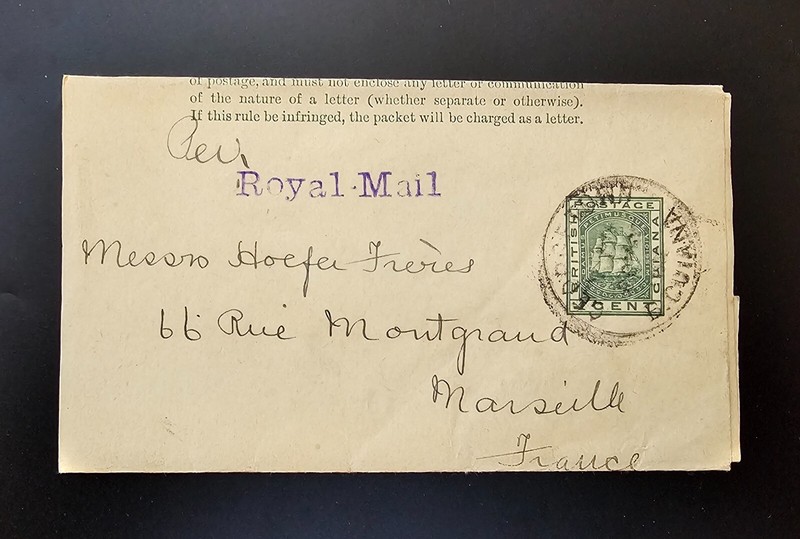 of postage, and must not enclose any letter or communication
of the nature of a letter (whether separate or otherwise).
If this rule be infringed, the packet will be charged as a letter.
Per.
Royal-Mail
POSTAGE
BRITISH
GUIANA
1 CENT
Messrs Hoefer Frères
66 Rue Montgrand
Marseille
France